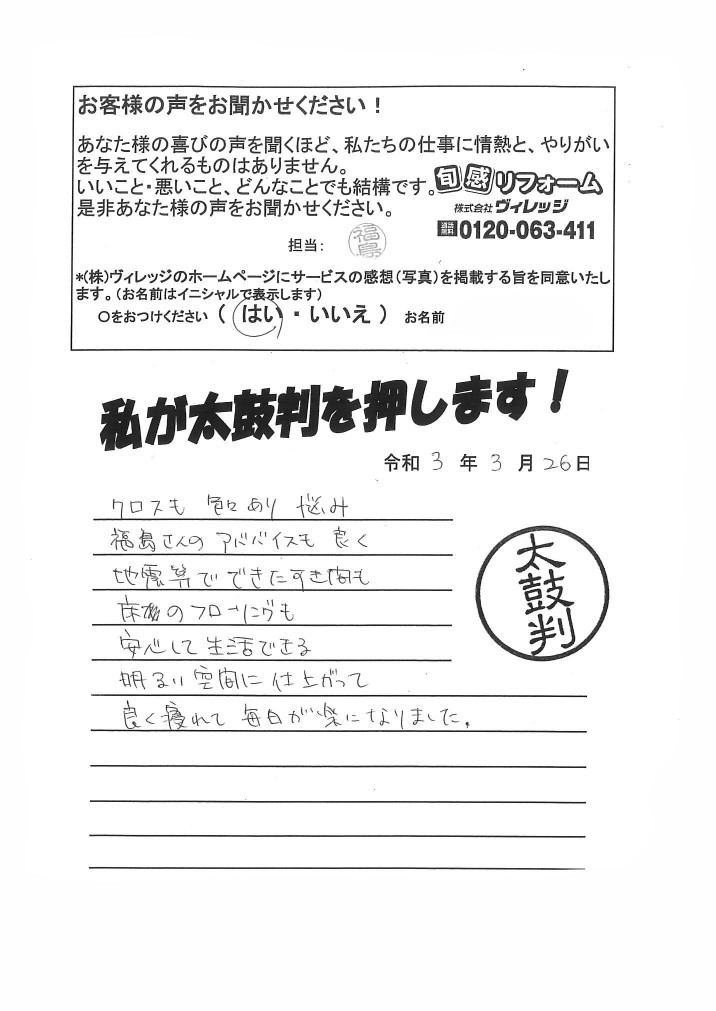 お客様の声をお聞かせください！
あなた様の喜びの声を聞くほど、私たちの仕事に情熱と、やりがい
を与えてくれるものはありません。
いいこと・悪いこと、どんなことでも結構です。
是非あなた様の声をお聞かせください。
旬感リフォーム
株式会社ヴィレッジ
通話無料0120-063-411
担当: 福島
*(株)ヴィレッジのホームページにサービスの感想(写真)を掲載する旨を同意いたし
ます。(お名前はイニシャルで表示します)
○をおつけください ( はい ・ いいえ ) お名前
私が太鼓判を押します！
令和 3 年 3 月 26 日
クロスも 色々あり 悩み
福島さんの アドバイスも 良く
地震等で できたすき間も
床板のフローリングも
安心して 生活できる
明るい 空間に 仕上がって
良く寝れて 毎日が楽になりました。
太鼓判